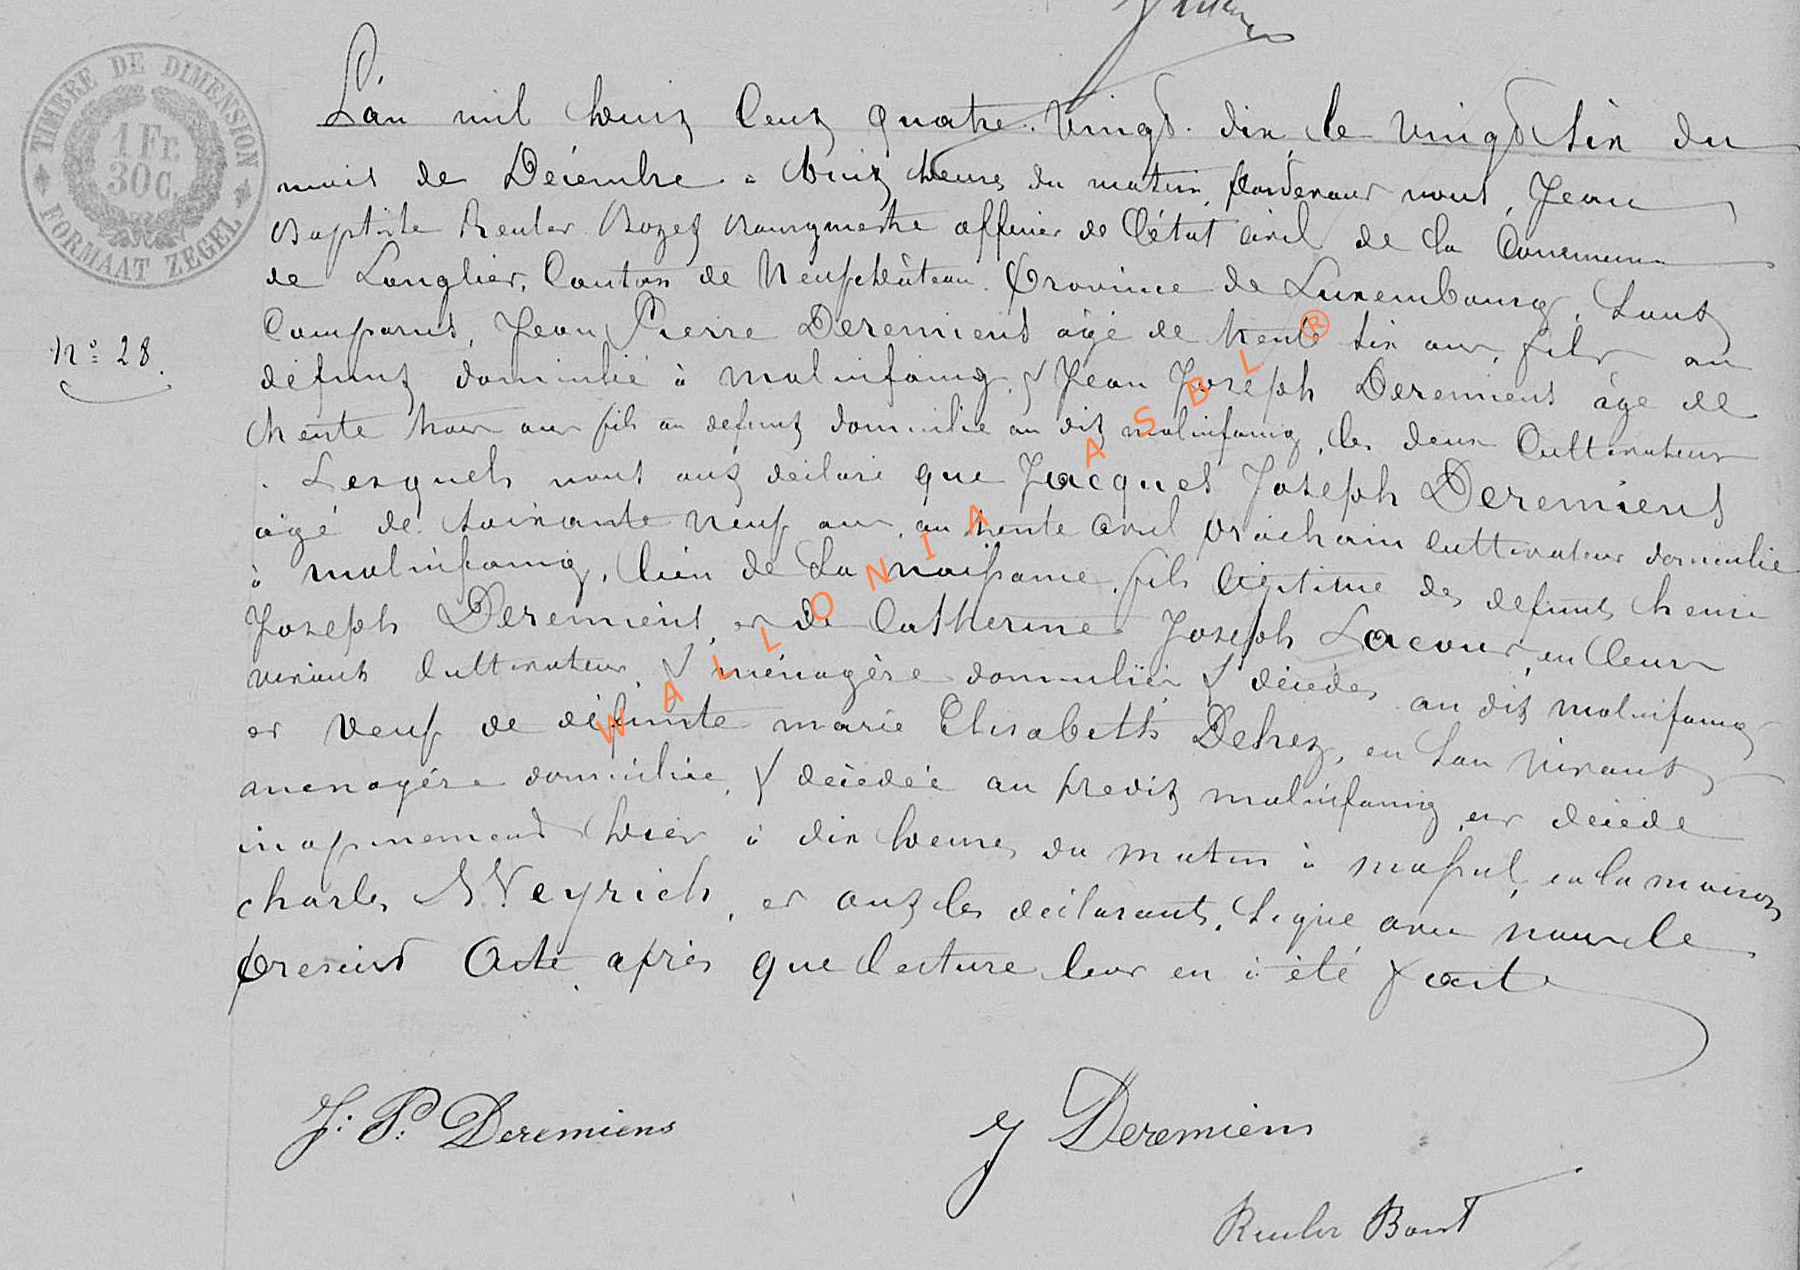 TIMBRE DE DIMENSION
1 Fr.
30 C.
FORMAAT ZEGEL
L'an mil huit Cent quatre-vingt-dix, le vingt six du
mois de Décembre à huit heures du matin, pardevant nous, Jean
Baptiste Reuler Bourgmestre officier de l'état civil de la Commune
de Longlier, Canton de Neufchâteau Province de Luxembourg, Sont
Comparus, Jean Pierre Deremiens âgé de trente six ans, fils au
défunt domicilié à malinfaing, & Jean Joseph Deremiens âgé de
trente trois ans fils au défunt domicilié au dit malinfaing, les deux Cultivateurs
Lesquels nous ont déclaré que Jacques Joseph Deremiens
âgé de soixante neuf ans au trente avril prochain cultivateur domicilié
à malinfaing, lieu de sa naissance, fils légitime des défunts henri
Joseph Deremiens, et de Catherine Joseph Lacour, en leur
vivant Cultivateur & ménagère domiciliés & décédés au dit malinfaing
et veuf de défunte marie Elisabeth Dehez, en son vivant
menagère domiciliée, & décédée au predit malinfaing, est décédé
inopinement hier à dix heures du matin à massul, en la maison
charles Weyrich, et ont les déclarants, signé avec nous le
Present Acte après que lecture leur en à été fait
N° 28.
J: P: Deremiens
J Deremiens
Reuler
WALLONIA ASBL ®